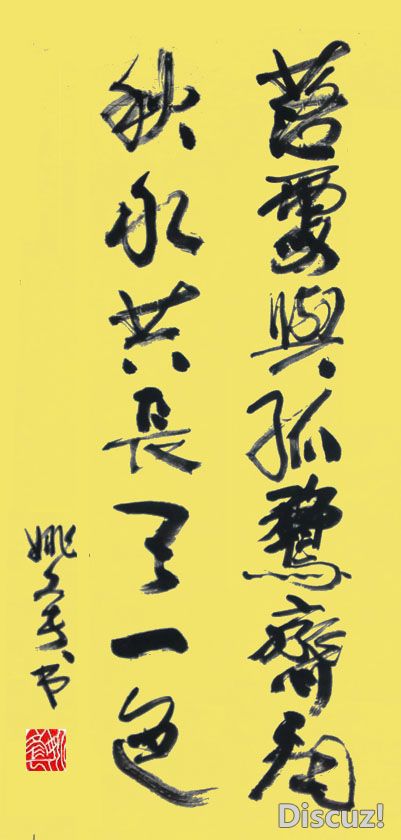 落霞與孤鶩齊飛
秋水共長天一色
姚文 书
Discuz!